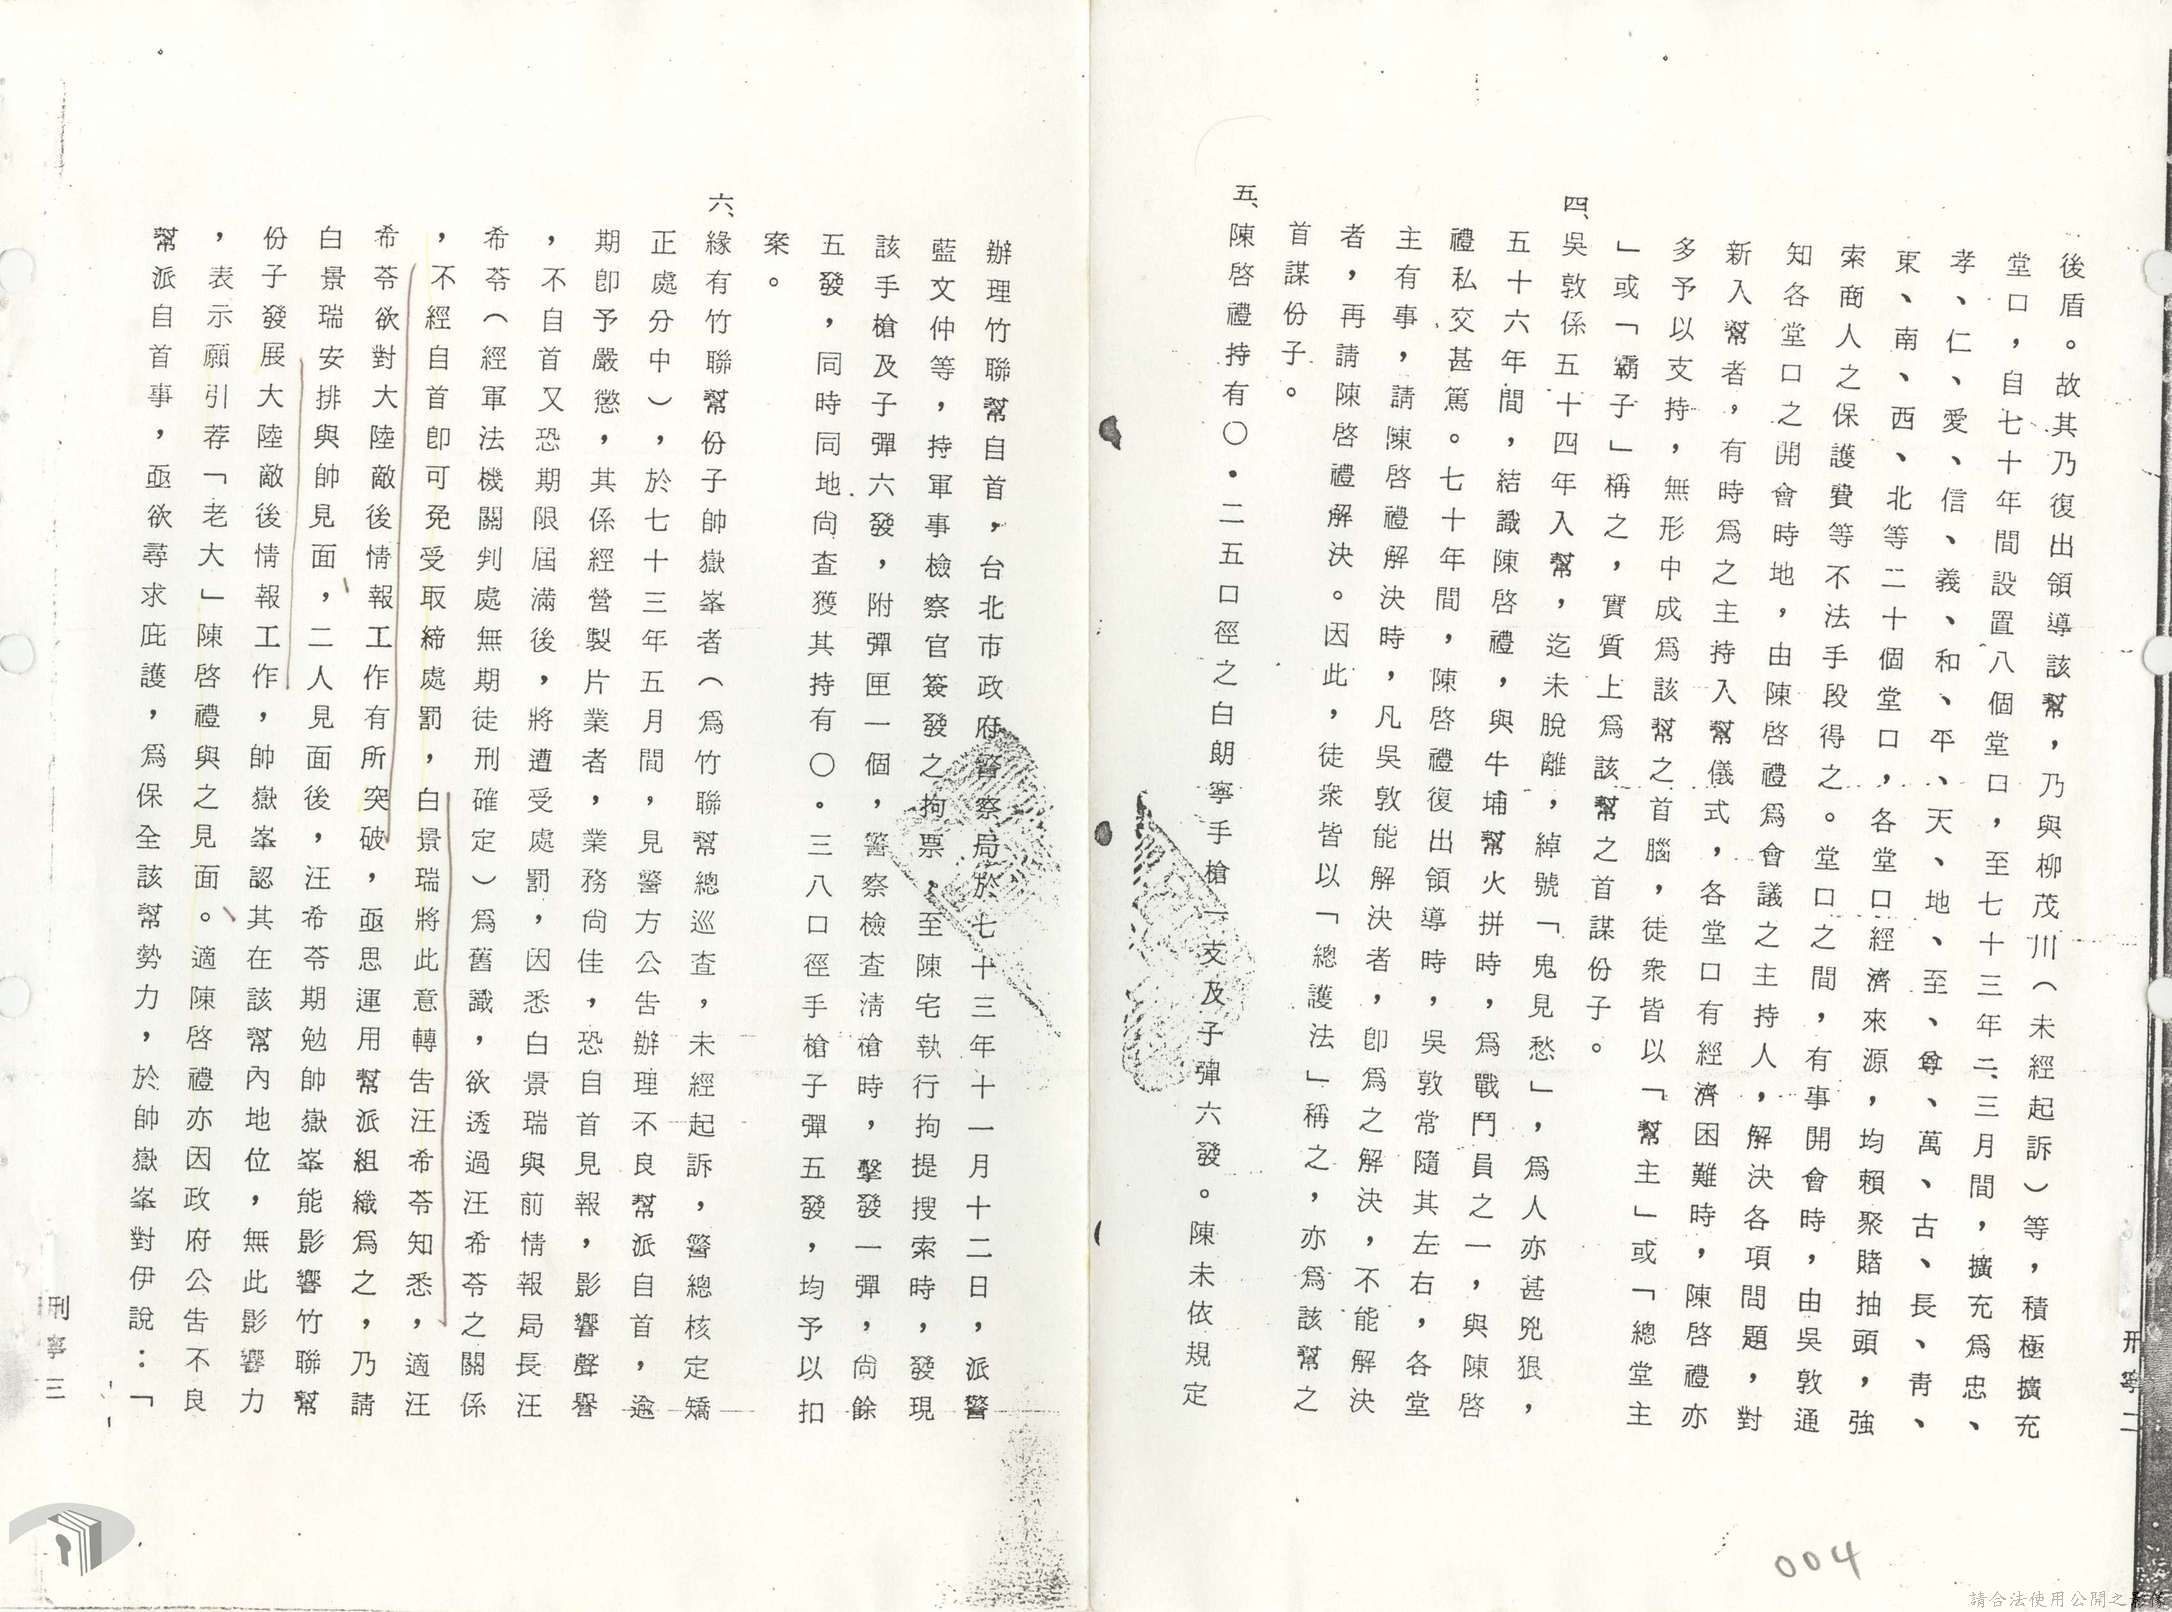 後盾。故其乃復出領導該幫，乃與柳茂川（未經起訴）等，積極擴充
堂口，自七十年間設置八個堂口，至七十三年二、三月間，擴充爲忠、
孝、仁、愛、信、義、和、平、天、地、至、尊、萬、古、長、靑、
東、南、西、北等二十個堂口，各堂口經濟來源，均賴聚賭抽頭，強
索商人之保護費等不法手段得之。堂口之間，有事開會時，由吳敦通
知各堂口之開會時地，由陳啓禮爲會議之主持人，解決各項問題，對
新入幫者，有時爲之主持入幫儀式，各堂口有經濟困難時，陳啓禮亦
多予以支持，無形中成爲該幫之首腦，徒衆皆以「幫主」或「總堂主
」或「霸子」稱之，實質上爲該幫之首謀份子。
四、吳敦係五十四年入幫，迄未脫離，綽號「鬼見愁」，爲人亦甚兇狠，
五十六年間，結識陳啓禮，與牛埔幫火拼時，爲戰鬥員之一，與陳啓
禮私交甚篤。七十年間，陳啓禮復出領導時，吳敦常隨其左右，各堂
主有事，請陳啓禮解決時，凡吳敦能解決者，卽爲之解決，不能解決
者，再請陳啓禮解決。因此，徒衆皆以「總護法」稱之，亦爲該幫之
首謀份子。
五、陳啓禮持有○．二五口徑之白朗寧手槍一支及子彈六發。陳未依規定
刑寧二
辦理竹聯幫自首，台北市政府警察局於七十三年十一月十二日，派警
藍文仲等，持軍事檢察官簽發之拘票，至陳宅執行拘提搜索時，發現
該手槍及子彈六發，附彈匣一個，警察檢查淸槍時，擊發一彈，尙餘
五發，同時同地尙查獲其持有○．三八口徑手槍子彈五發，均予以扣
案。
六、緣有竹聯幫份子帥嶽峯者（爲竹聯幫總巡查，未經起訴，警總核定矯
正處分中），於七十三年五月間，見警方公告辦理不良幫派自首，逾
期卽予嚴懲，其係經營製片業者，業務尙佳，恐自首見報，影響聲譽
，不自首又恐期限屆滿後，將遭受處罰，因悉白景瑞與前情報局長汪
希苓（經軍法機關判處無期徒刑確定）爲舊識，欲透過汪希苓之關係
，不經自首卽可免受取締處罰，白景瑞將此意轉告汪希苓知悉，適汪
希苓欲對大陸敵後情報工作有所突破，亟思運用幫派組織爲之，乃請
白景瑞安排與帥見面，二人見面後，汪希苓期勉帥嶽峯能影響竹聯幫
份子發展大陸敵後情報工作，帥嶽峯認其在該幫內地位，無此影響力
，表示願引荐「老大」陳啓禮與之見面。適陳啓禮亦因政府公告不良
幫派自首事，亟欲尋求庇護，爲保全該幫勢力，於帥嶽峯對伊說：「
刑寧三
004
請合法使用公開之影像